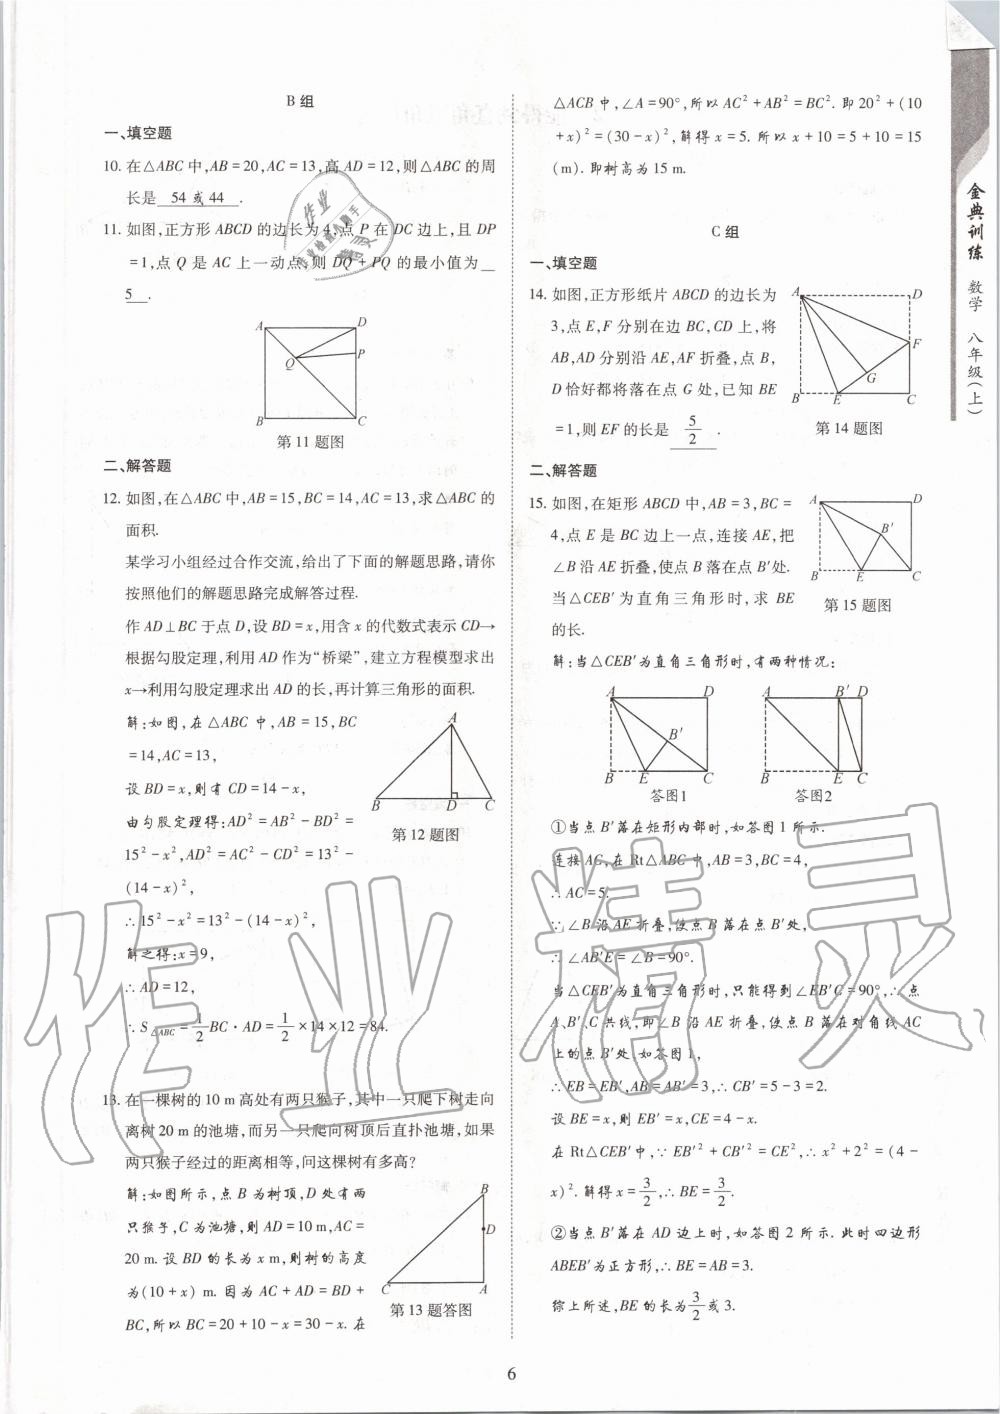 B 组
一、填空题
10. 在△ABC 中,AB = 20,AC = 13,高 AD = 12,则△ABC 的周
长是 54 或 44 .
11. 如图,正方形 ABCD 的边长为 4,点 P 在 DC 边上,且 DP
= 1,点 Q 是 AC 上一动点,则 DQ + PQ 的最小值为
5 .
A D
Q P
B C
第 11 题图
二、解答题
12. 如图,在△ABC 中,AB = 15,BC = 14,AC = 13,求△ABC 的
面积.
某学习小组经过合作交流,给出了下面的解题思路,请你
按照他们的解题思路完成解答过程.
作 AD⊥BC 于点 D,设 BD = x,用含 x 的代数式表示 CD→
根据勾股定理,利用 AD 作为“桥梁”,建立方程模型求出
x→利用勾股定理求出 AD 的长,再计算三角形的面积.
解:如图,在△ABC 中,AB = 15,BC
= 14,AC = 13,
设 BD = x,则有 CD = 14 - x,
由勾股定理得:AD² = AB² - BD² =
15² - x²,AD² = AC² - CD² = 13² -
(14 - x)²,
∴ 15² - x² = 13² - (14 - x)²,
解之得:x = 9,
∴ AD = 12,
∴ S△ABC = 1/2 BC · AD = 1/2 × 14 × 12 = 84.
A
B D C
第 12 题图
13. 在一棵树的 10 m 高处有两只猴子,其中一只爬下树走向
离树 20 m 的池塘,而另一只爬向树顶后直扑池塘,如果
两只猴子经过的距离相等,问这棵树有多高?
解:如图所示,点 B 为树顶,D 处有两
只猴子,C 为池塘,则 AD = 10 m,AC =
20 m. 设 BD 的长为 x m,则树的高度
为(10 + x) m. 因为 AC + AD = BD +
BC,所以 BC = 20 + 10 - x = 30 - x. 在
B
D
C A
第 13 题答图
△ACB 中,∠A = 90°,所以 AC² + AB² = BC². 即 20² + (10
+ x)² = (30 - x)²,解得 x = 5. 所以 x + 10 = 5 + 10 = 15
(m). 即树高为 15 m.
C 组
一、填空题
14. 如图,正方形纸片 ABCD 的边长为
3,点 E,F 分别在边 BC,CD 上,将
AB,AD 分别沿 AE,AF 折叠,点 B,
D 恰好都将落在点 G 处,已知 BE
= 1,则 EF 的长是 5/2 .
A D
F
G
B E C
第 14 题图
二、解答题
15. 如图,在矩形 ABCD 中,AB = 3,BC =
4,点 E 是 BC 边上一点,连接 AE,把
∠B 沿 AE 折叠,使点 B 落在点 B′处.
当△CEB′为直角三角形时,求 BE
的长.
A D
B′
B E C
第 15 题图
解:当△CEB′为直角三角形时,有两种情况:
A D
B′
B E C
答图1
A B′ D
B E C
答图2
①当点 B′落在矩形内部时,如答图 1 所示.
连接 AC,在 Rt△ABC 中,AB = 3,BC = 4,
∴ AC = 5.
∵ ∠B 沿 AE 折叠,使点 B 落在点 B′处,
∴ ∠AB′E = ∠B = 90°.
当△CEB′为直角三角形时,只能得到∠EB′C = 90°,∴ 点
A、B′、C 共线,即∠B 沿 AE 折叠,使点 B 落在对角线 AC
上的点 B′处,如答图 1,
∴ EB = EB′,AB = AB′ = 3,∴ CB′ = 5 - 3 = 2.
设 BE = x,则 EB′ = x,CE = 4 - x.
在 Rt△CEB′中,∵ EB′² + CB′² = CE²,∴ x² + 2² = (4 -
x)². 解得 x = 3/2,∴ BE = 3/2.
②当点 B′落在 AD 边上时,如答图 2 所示. 此时四边形
ABEB′为正方形,∴ BE = AB = 3.
综上所述,BE 的长为 3/2 或 3.
金典训练
数学
八年级(上)
作业精灵
6